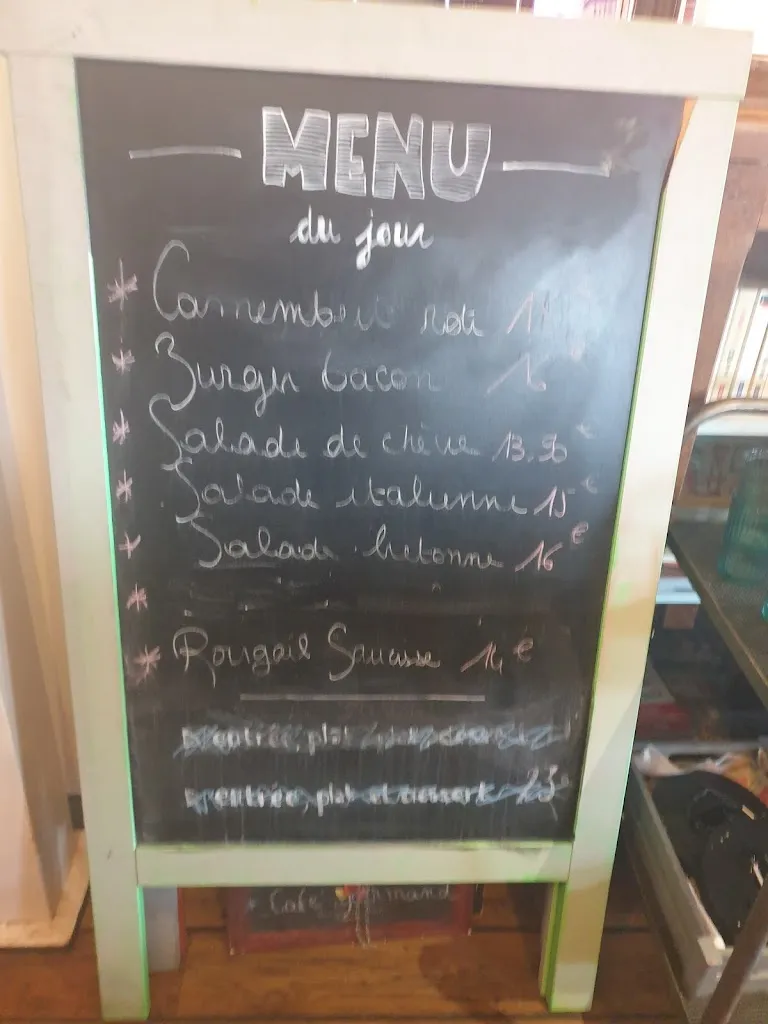 MENU
du jour
* Camembert roti
* Burger bacon
* Salade de chèvre 13,90 €
* Salade italienne 15 €
* Salade bretonne 16 €
*
* Rougail Saucisse 14 €
entrée, plat
entrée, plat et dessert 23
+ Café gourmand